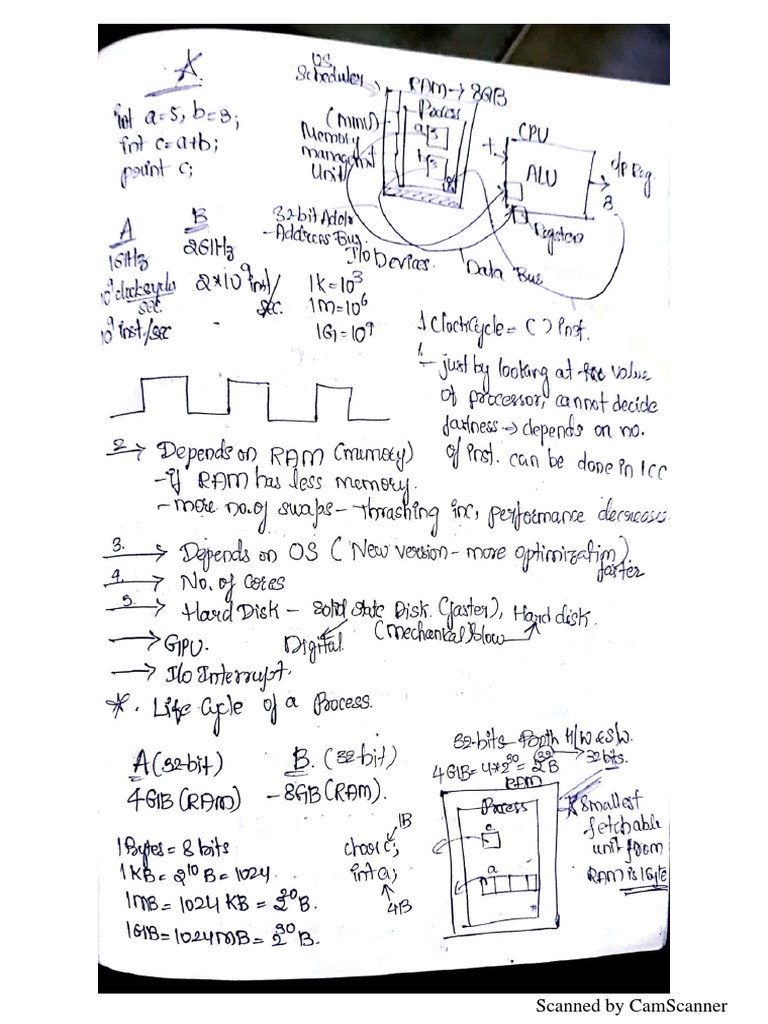 A.
int a=5, b=3;
int c=a+b;
print c;
OS
Scheduler
RAM → 8GB
Process
(MMU)
Memory
management
Unit
a 5
b 3
CPU
ALU
+
o/p Reg.
8
Registers
32-bit Addr
- Address Bus.
I/O Devices.
Data Bus
A B
1GHz 2GHz
10^9 clockcycle/sec. 2*10^9 inst/sec.
10^9 inst/sec -
1K=10^3
1M=10^6
1G=10^9
1 ClockCycle = ( ) Inst.
1. - just by looking at the value
of processor, cannot decide
fastness → depends on no.
of inst. can be done in 1CC
2 → Depends on RAM (memory)
- if RAM has less memory.
- more no. of swaps - thrashing inc, performance decreases
3. → Depends on OS (New version - more optimization)
faster
4. → No. of cores
5. → Hard Disk - Solid State Disk (faster), Hard disk.
Digital (Mechanical) slow
→ GPU.
→ I/O Interrupt.
*. Life Cycle of a Process.
A (32-bit) B. (32-bit)
4GB (RAM) - 8GB (RAM).
32-bits - Both H/W & S/W.
4GB = 4*2^30 = 2^32 B → 32 bits.
RAM
Process
c
a
* Smallest
fetchable
unit from
RAM is 1 Byte
1 Bytes = 8 bits
1KB = 2^10 B = 1024
1MB = 1024 KB = 2^20 B.
1GB = 1024 MB = 2^30 B.
1B
char c;
int a;
4B
Scanned by CamScanner